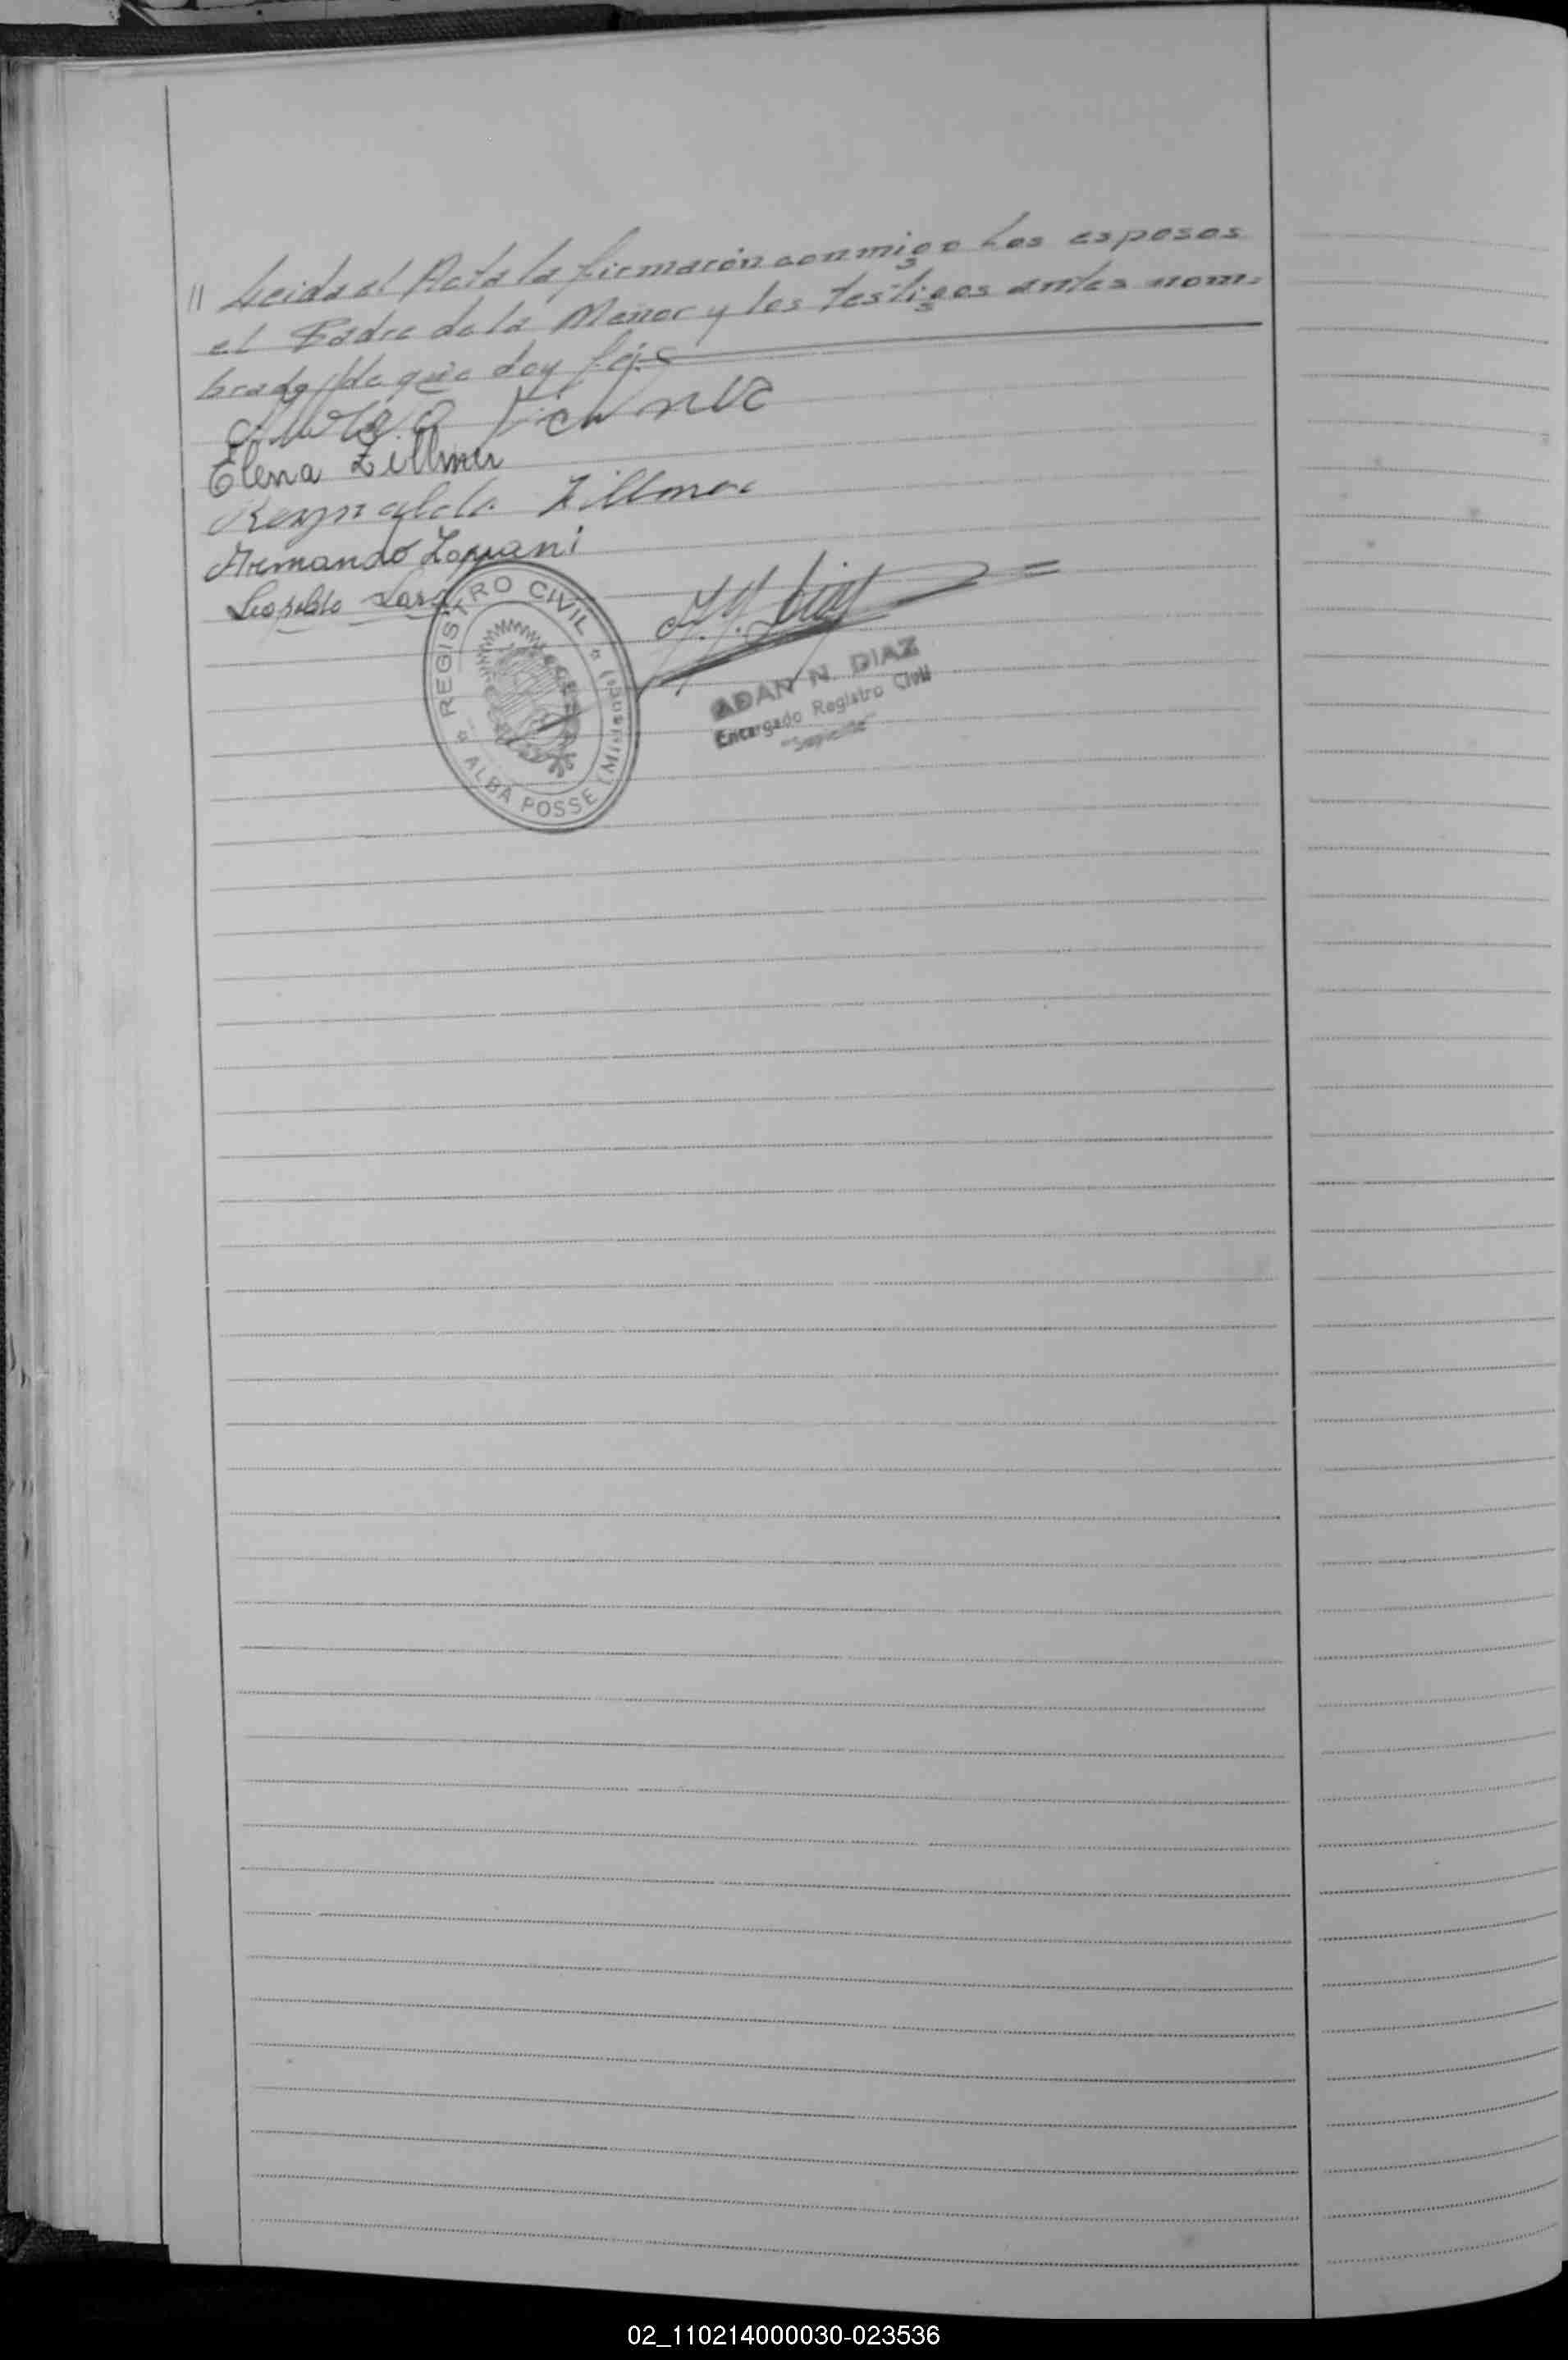 // Leida el Acta la firmarón conmigo Los esposos
el Padre de la Menor y los testigos antes nom-
brados de que doy fé:
Elena Zillmer
Reynaldo Zillmer
Armando
Leopoldo
REGISTRO CIVIL
ALBA POSSE (Misiones)
ADAN N. DIAZ
Encargado Registro Civil
"Suplente"
02_110214000030-023536